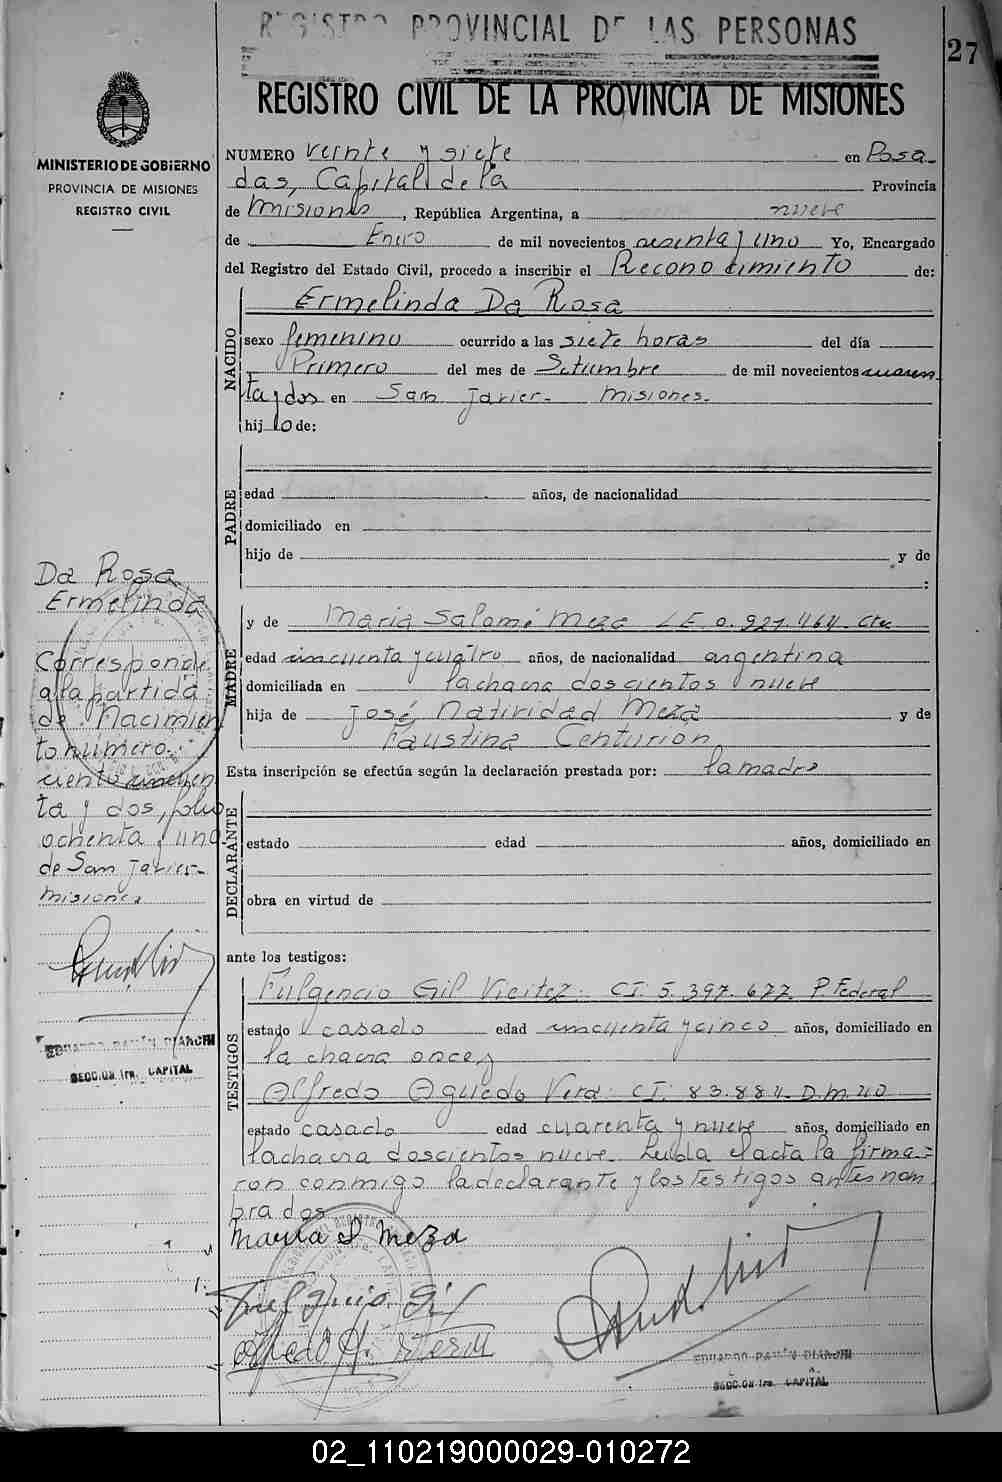 REGISTRO PROVINCIAL DE LAS PERSONAS
27
REGISTRO CIVIL DE LA PROVINCIA DE MISIONES
MINISTERIO DE GOBIERNO
PROVINCIA DE MISIONES
REGISTRO CIVIL
NUMERO veinte y siete en Posa-
das, Capital de la Provincia
de Misiones, República Argentina, a nueve
de Enero de mil novecientos sesenta y uno Yo, Encargado
del Registro del Estado Civil, procedo a inscribir el Reconocimiento de:
NACIDO
Ermelinda Da Rosa
sexo femenino ocurrido a las siete horas del día
Primero del mes de Setiembre de mil novecientos cuaren
ta y dos en San Javier- Misiones.
hij de:
PADRE
edad años, de nacionalidad
domiciliado en
hijo de y de
:
MADRE
y de Maria Salomé Meza L.E. 0.927.464. Ctes
edad cincuenta y cuatro años, de nacionalidad argentina
domiciliada en la chacra doscientos nueve
hija de José Natividad Meza y de
Faustina Centurión
Esta inscripción se efectúa según la declaración prestada por: la madre
DECLARANTE
estado edad años, domiciliado en
obra en virtud de
ante los testigos:
TESTIGOS
Fulgencio Gil Vieitez. CI. 5.397.677. P. Federal
estado casado edad cincuenta y cinco años, domiciliado en
la chacra once y
Alfredo Aguedo Vera CI. 83.884. D.M.
estado casado edad cuarenta y nueve años, domiciliado en
la chacra doscientos nueve. Leída el acta la firma=
ron conmigo la declarante y los testigos antes nom
brados
Maria S Meza
Fulgencio Gil
Alfredo A. Vera
EDUARDO RAMÓN BIANCHI
SECC. 1ra. CAPITAL
Da Rosa
Ermelinda
Corresponde
a la partida
de Nacimien
to número
ciento cincuen
ta y dos, folio
ochenta y uno
de San Javier-
Misiones
EDUARDO RAMÓN BIANCHI
SECC. 1ra. CAPITAL
02_110219000029-010272